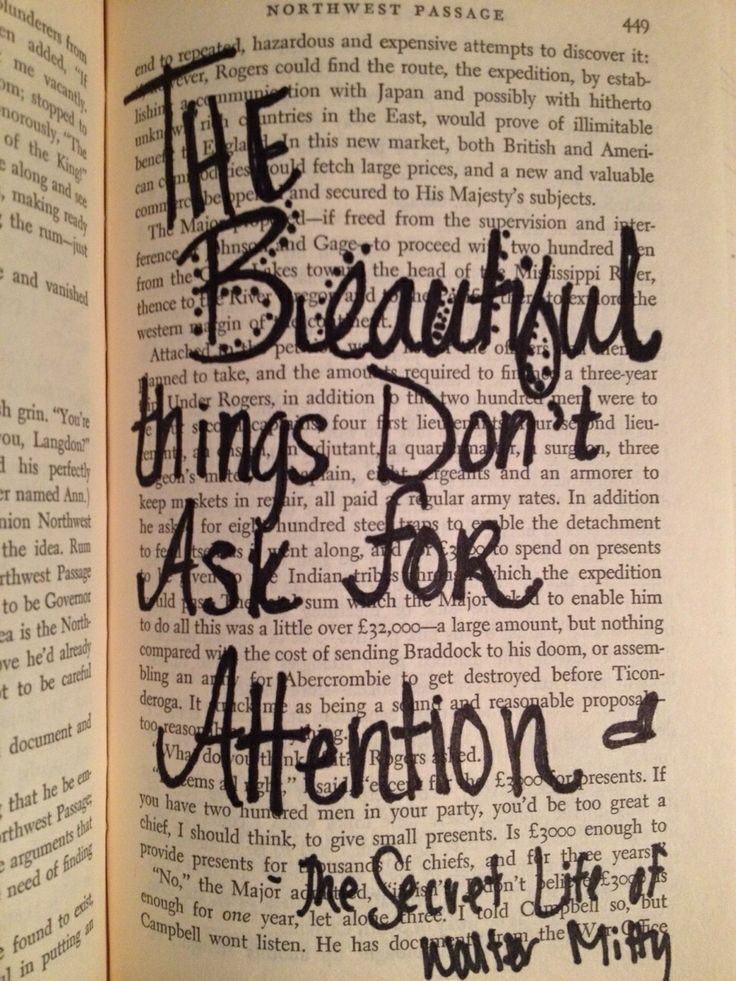 plunderers from
en added, "If
me vacantly.
om; stopped to
onorously, "The
of the King!"
e along and see
s, making ready
g the rum—just
e and vanished
sh grin. "You're
you, Langdon?"
d his perfectly
er named Ann.)
nion Northwest
the idea. Rum
rthwest Passage
to be Governor
ea is the North-
ove he'd already
ot to be careful
document and
g that he be em-
orthwest Passage;
e arguments that
need of finding
e found to exist,
l in putting an
NORTHWEST PASSAGE
449
end to repeated, hazardous and expensive attempts to discover it:
Rogers could find the route, the expedition, by estab-
lishing a communication with Japan and possibly with hitherto
unknown rich countries in the East, would prove of illimitable
benefit to England. In this new market, both British and Ameri-
can commodities would fetch large prices, and a new and valuable
commerce be opened and secured to His Majesty's subjects.
The Major proposed—if freed from the supervision and inter-
ference of Johnson and Gage—to proceed with two hundred men
from the Great Lakes toward the head of the Mississippi River,
thence to the River Oregon and to explore the
western margin of the continent.
Attached to the
planned to take, and the amounts required to finance a three-year
Under Rogers, in addition to the two hundred men were to
be four first lieutenants, four second lieu-
an adjutant, a quartermaster, a surgeon, three
surgeon's mates, a chaplain, eight sergeants and an armorer to
keep muskets in repair, all paid at regular army rates. In addition
he asked for eight hundred steel traps to enable the detachment
to feed itself as it went along, and for to spend on presents
to be given to the Indian tribes through which the expedition
would pass. The sum which the Major asked to enable him
to do all this was a little over £32,000—a large amount, but nothing
compared with the cost of sending Braddock to his doom, or assem-
bling an army for Abercrombie to get destroyed before Ticon-
deroga. It struck me as being a sound and reasonable proposal—
too reasonable
"What do you think Rogers asked.
"Seems all right," I said, "except for the £3000 for presents. If
you have two hundred men in your party, you'd be too great a
chief, I should think, to give small presents. Is £3000 enough to
provide presents for thousands of chiefs, and for three years?"
"No," the Major admitted, don't believe £3000 is
enough for one year, let alone three. I told Campbell so, but
Campbell wont listen. He has documents from the War Office
THE
Beautiful
things Don't
Ask for
Attention
- The Secret Life of
Walter Mitty